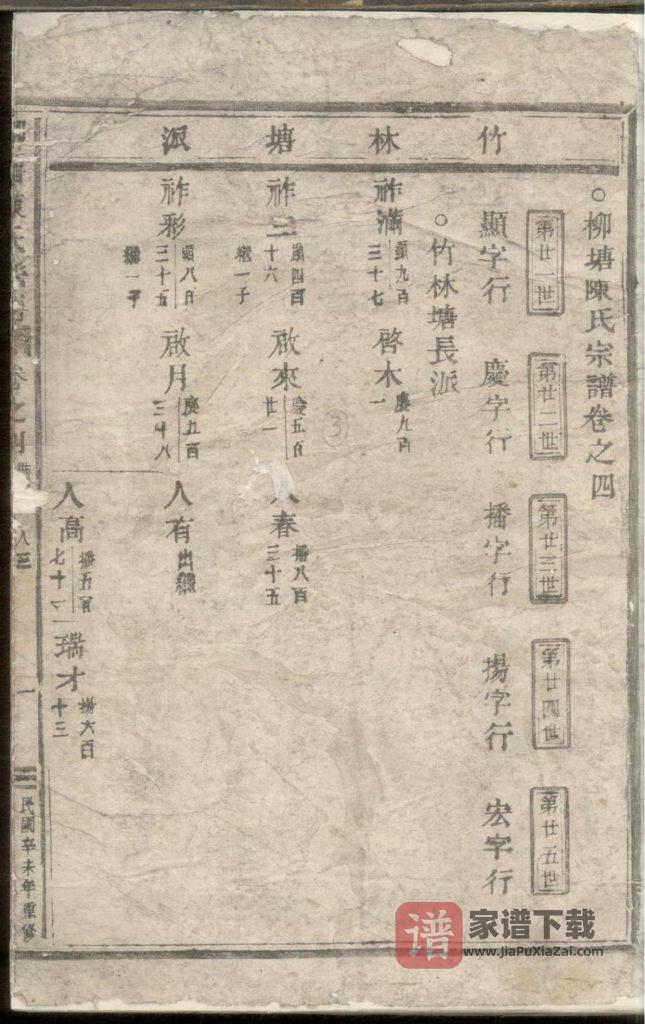 竹林塘派
○柳塘陳氏宗譜卷之四
第廿一世 第廿二世 第廿三世 第廿四世 第廿五世
顯字行 慶字行 播字行 揚字行 宏字行
○竹林塘長派
祚滿 顯九百三十七 啓木 慶九百一
祚三 顯四百十六繼一子 啟來 慶五百廿一 人春 播八百三十五
③
祚彩 顯八百三十五繼一子 啟月 慶五百三十八 人有 出繼
人高 播五百七十 瑞才 揚六百十三
陳氏宗譜 卷之四 一 民國辛未年重修
谱 家谱下载
www.JiaPuXiaZai.com